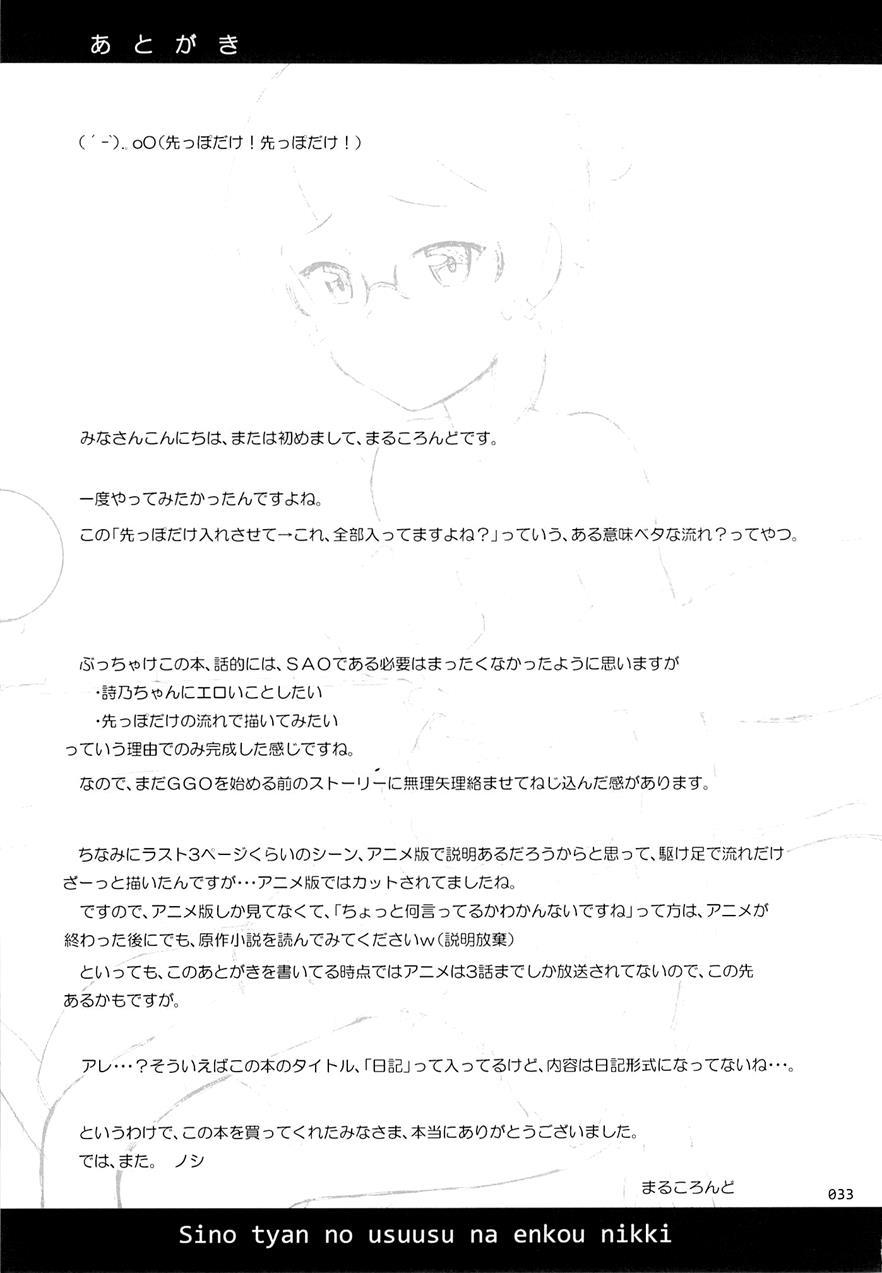 あとがき
(´-`).。oO(先っぽだけ!先っぽだけ!)
みなさんこんにちは、または初めまして、まるころんどです。
一度やってみたかったんですよね。
この「先っぽだけ入れさせて→これ、全部入ってますよね?」っていう、ある意味ベタな流れ?ってやつ。
ぶっちゃけこの本、話的には、SAOである必要はまったくなかったように思いますが
・詩乃ちゃんにエロいことしたい
・先っぽだけの流れで描いてみたい
っていう理由でのみ完成した感じですね。
なので、まだGGOを始める前のストーリーに無理矢理絡ませてねじ込んだ感があります。
ちなみにラスト3ページくらいのシーン、アニメ版で説明あるだろうからと思って、駆け足で流れだけ
ざーっと描いたんですが・・・アニメ版ではカットされてましたね。
ですので、アニメ版しか見てなくて、「ちょっと何言ってるかわかんないですね」って方は、アニメが
終わった後にでも、原作小説を読んでみてくださいw(説明放棄)
といっても、このあとがきを書いてる時点ではアニメは3話までしか放送されてないので、この先
あるかもですが。
アレ・・・?そういえばこの本のタイトル、「日記」って入ってるけど、内容は日記形式になってないね・・・。
というわけで、この本を買ってくれたみなさま、本当にありがとうございました。
では、また。 ノシ
まるころんど
033
Sino tyan no usuusu na enkou nikki